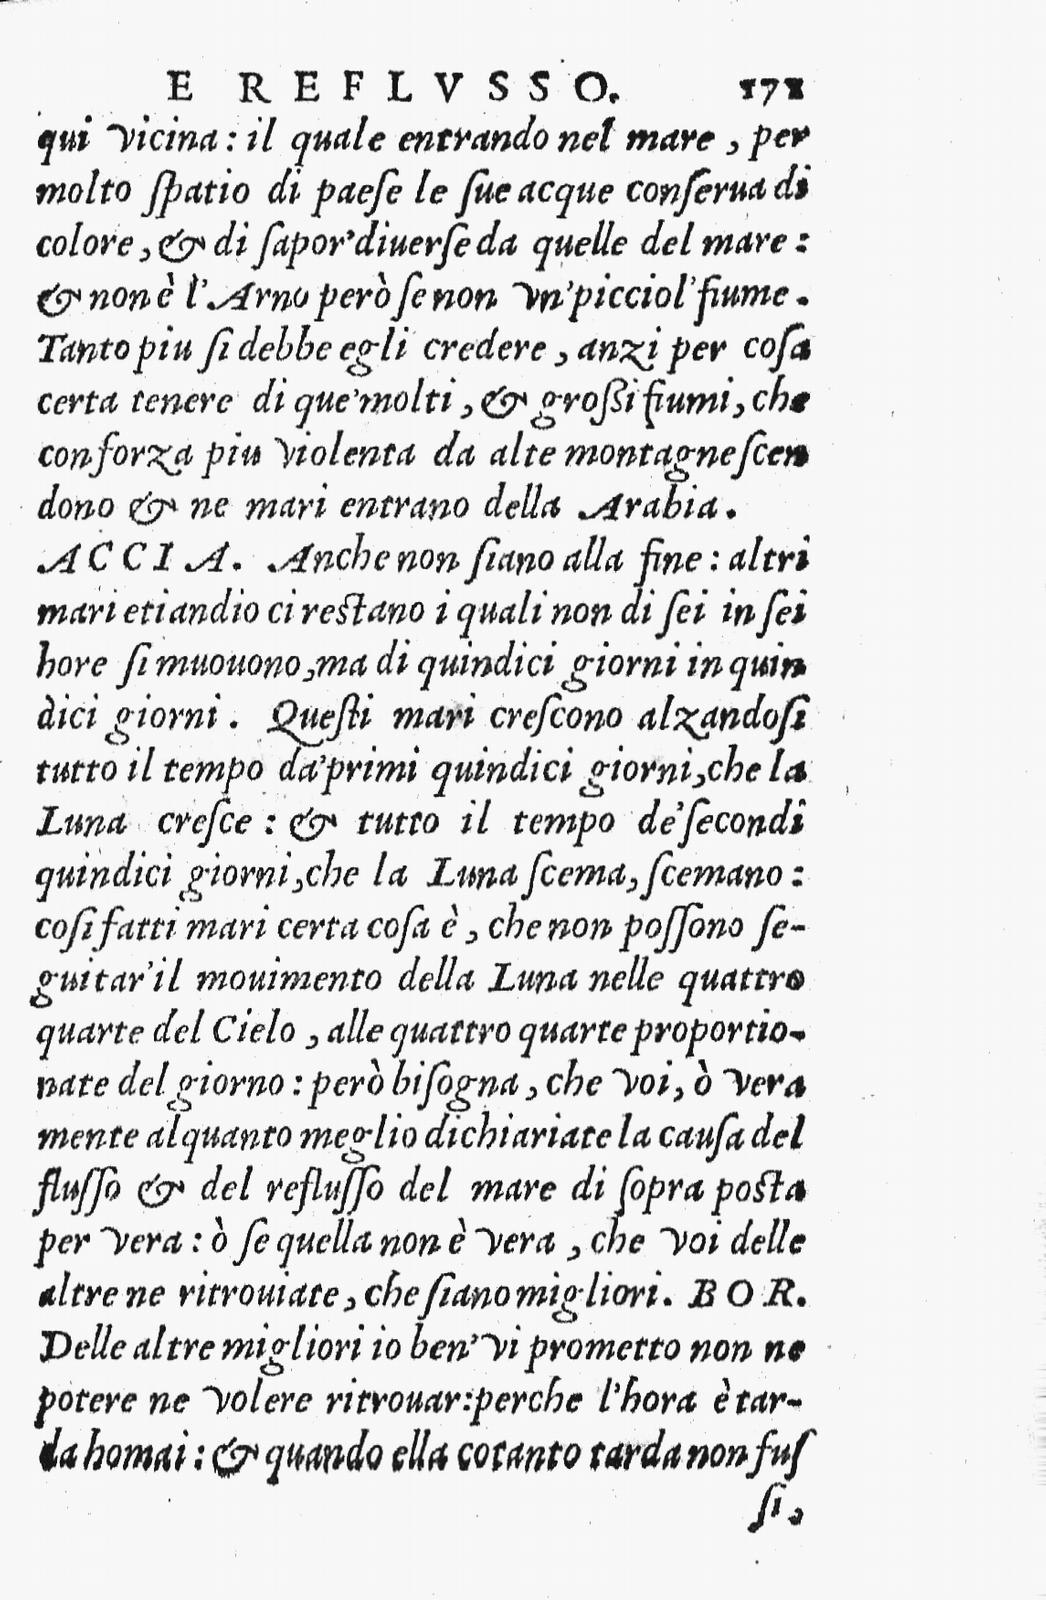 E REFLVSSO. 171
qui vicina: il quale entrando nel mare, per
molto ſpatio di paeſe le ſue acque conſerua di
colore, & di ſapor'diuerſe da quelle del mare:
& non è l'Arno però ſe non vn'picciol'fiume.
Tanto piu ſi debbe egli credere, anzi per coſa
certa tenere di que'molti, & groſſi fiumi, che
con forza piu violenta da alte montagne ſcen
dono & ne mari entrano della Arabia.
ACCIA. Anche non ſiano alla fine: altri
mari etiandio ci reſtano i quali non di ſei in ſei
hore ſi muouono, ma di quindici giorni in quin
dici giorni. Queſti mari creſcono alzandoſi
tutto il tempo da'primi quindici giorni, che la
Luna creſce: & tutto il tempo de'ſecondi
quindici giorni, che la Luna ſcema, ſcemano:
coſi fatti mari certa coſa è, che non poſſono ſe-
guitar'il mouimento della Luna nelle quattro
quarte del Cielo, alle quattro quarte proportio-
nate del giorno: però biſogna, che voi, ò vera
mente alquanto meglio dichiariate la cauſa del
fluſſo & del refluſſo del mare di ſopra poſta
per vera: ò ſe quella non è vera, che voi delle
altre ne ritrouiate, che ſiano migliori. BOR.
Delle altre migliori io ben'vi prometto non ne
potere ne volere ritrouar: perche l'hora è tar-
da homai: & quando ella cotanto tarda non fuſ
ſi,